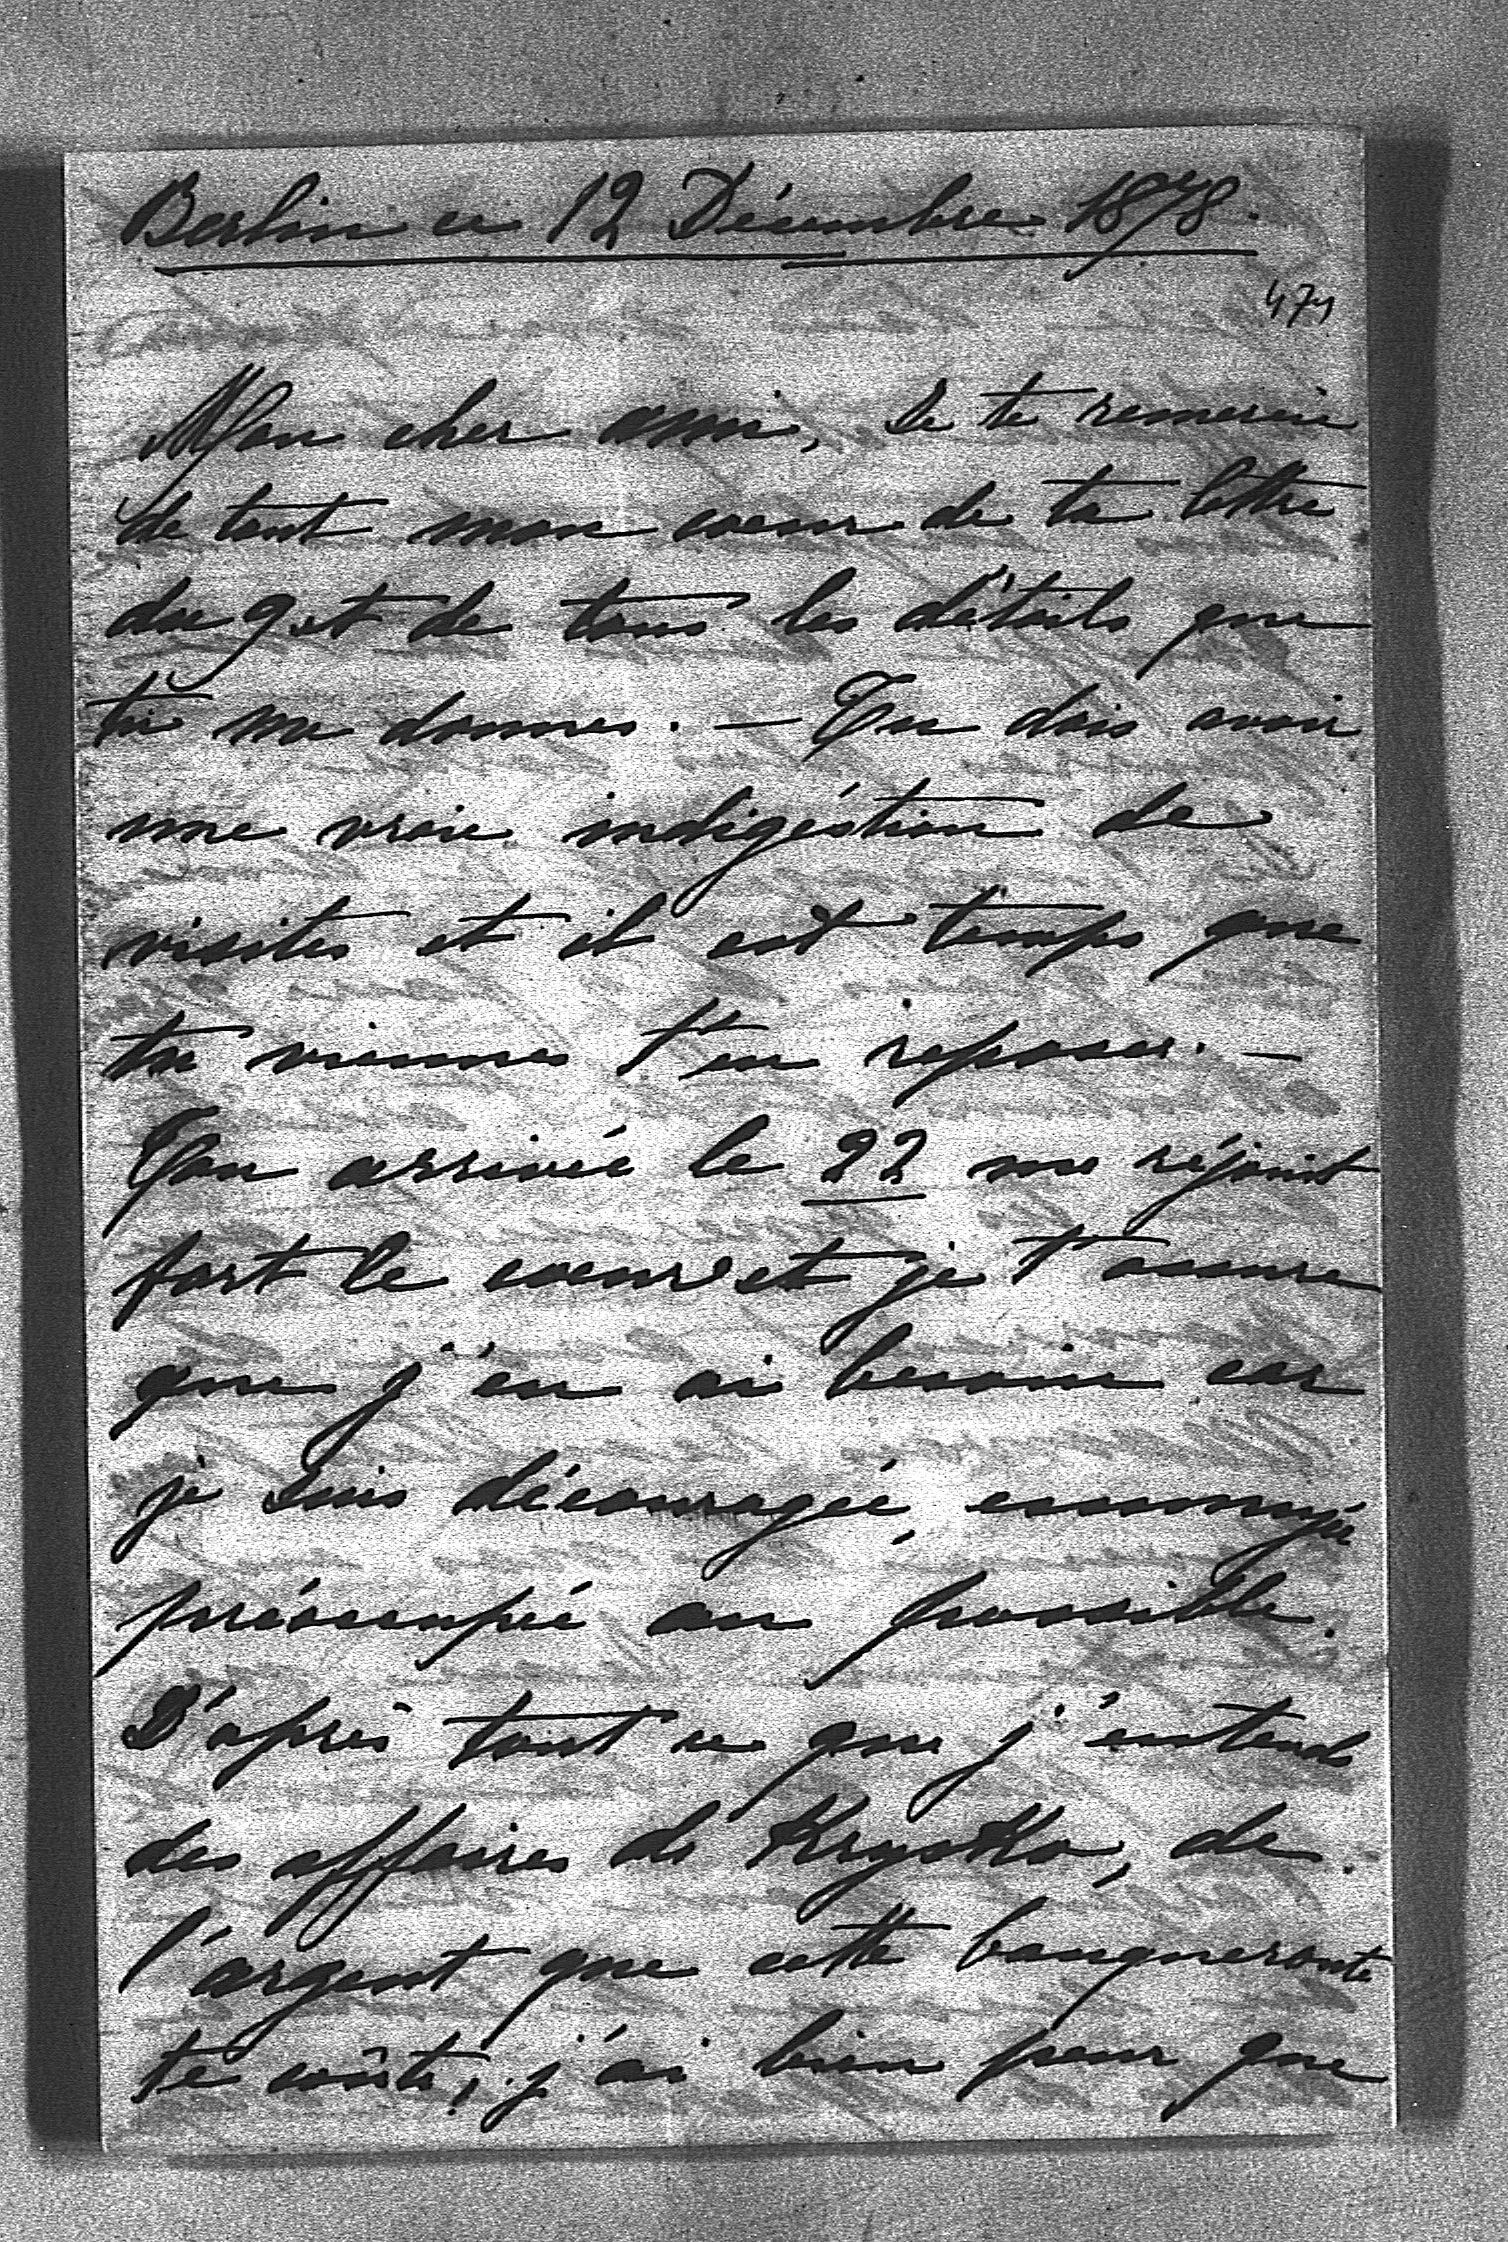 Berlin ce 12 Décembre 1878.
474
Mon cher ami, Je te remercie
de tout mon coeur de ta lettre
du 9 et de tous les détails que
tu me donnes. — Tu dois avoir
une vraie indigéstion de
visites et il est temps que
tu viennes t'en reposer. —
Ton arrivée le 22 me réjouit
fort le coeur et je t'assure
que j'en ai besoin car
je suis découragée, ennuyée
préoccupée au possible.
D'après tout ce que j'entends
des affaires de Krystko, de
l'argent que cette banqueroute
te coûte, j'ai bien peur que